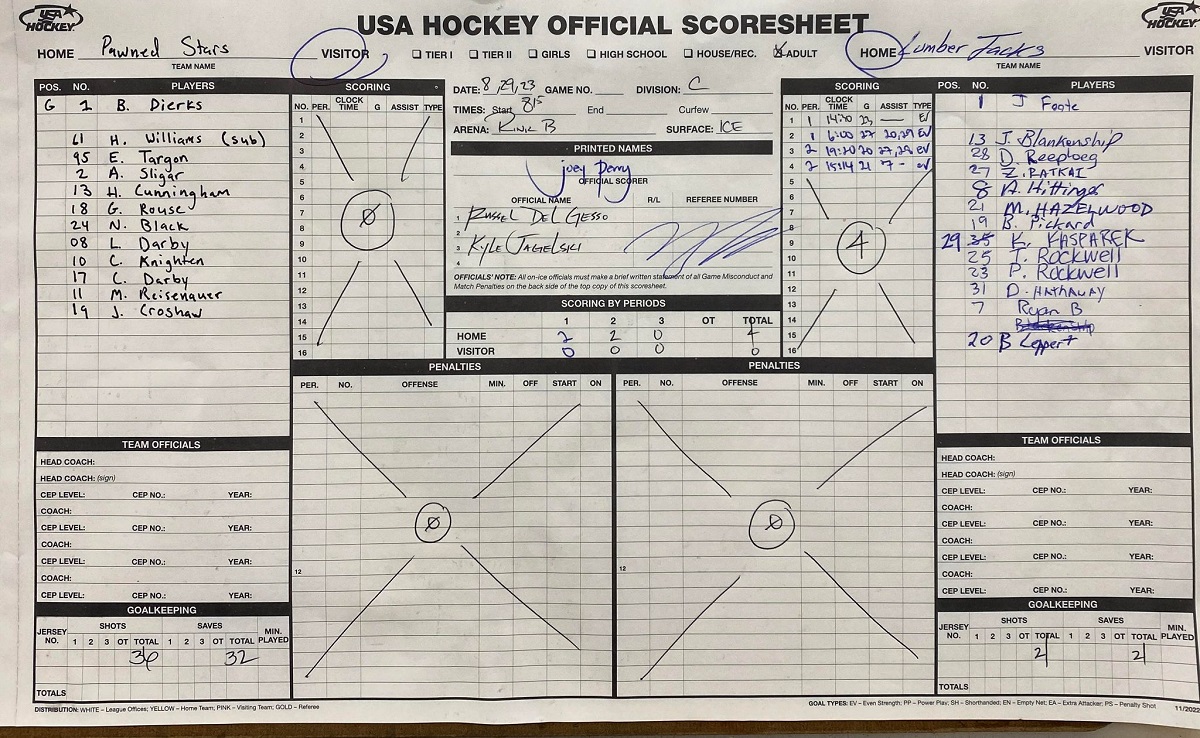 USA HOCKEY
USA HOCKEY OFFICIAL SCORESHEET
USA HOCKEY
HOME Pawned Stars VISITOR
TEAM NAME
☐ TIER I ☐ TIER II ☐ GIRLS ☐ HIGH SCHOOL ☐ HOUSE/REC. ☒ ADULT
HOME Lumber Jacks VISITOR
TEAM NAME
POS. NO. PLAYERS
G 1 B. Dierks
61 H. Williams (sub)
95 E. Targon
2 A. Sligar
13 H. Cunningham
18 G. Rouse
24 N. Black
08 L. Darby
10 C. Knighten
17 C. Darby
11 M. Reisenauer
19 J. Croshaw
SCORING
NO. PER. CLOCK TIME G ASSIST TYPE
1
2
3
4
5
6
7
8
9
10
11
12
13
14
15
16
Ø
DATE: 8/29/23 GAME NO. DIVISION: C
TIMES: Start 815 End Curfew
ARENA: Rink B SURFACE: ICE
PRINTED NAMES
Joey Perry
OFFICIAL SCORER
OFFICIAL NAME R/L REFEREE NUMBER
1 Russel Del Gesso
2
3 Kyle Jagielski
4
OFFICIALS' NOTE: All on-ice officials must make a brief written statement of all Game Misconduct and
Match Penalties on the back side of the top copy of this scoresheet.
SCORING BY PERIODS
1 2 3 OT TOTAL
HOME 2 2 0 4
VISITOR 0 0 0 0
SCORING
NO. PER. CLOCK TIME G ASSIST TYPE
1 1 14:30 23 — EV
2 1 6:00 27 20,29 EV
3 2 19:20 20 27,29 EV
4 2 15:14 21 7 - EV
5
6
7
8
9
10
11
12
13
14
15
16
4
POS. NO. PLAYERS
1 J Foote
13 J. Blankenship
28 D. Reeploeg
27 Z. RATKAI
8 A. Hittinger
21 M. HAZELWOOD
19 B. Pickard
29 35 K. KASPAREK
25 T. Rockwell
23 P. Rockwell
31 D. HATHAWAY
7 Ryan B
20 B Leppert
PENALTIES
PER. NO. OFFENSE MIN. OFF START ON
Ø
12
PENALTIES
PER. NO. OFFENSE MIN. OFF START ON
Ø
12
TEAM OFFICIALS
HEAD COACH:
HEAD COACH: (sign)
CEP LEVEL: CEP NO.: YEAR:
COACH:
CEP LEVEL: CEP NO.: YEAR:
COACH:
CEP LEVEL: CEP NO.: YEAR:
COACH:
CEP LEVEL: CEP NO.: YEAR:
GOALKEEPING
JERSEY NO. SHOTS 1 2 3 OT TOTAL SAVES 1 2 3 OT TOTAL MIN. PLAYED
36 32
TOTALS
TEAM OFFICIALS
HEAD COACH:
HEAD COACH: (sign)
CEP LEVEL: CEP NO.: YEAR:
COACH:
CEP LEVEL: CEP NO.: YEAR:
COACH:
CEP LEVEL: CEP NO.: YEAR:
COACH:
CEP LEVEL: CEP NO.: YEAR:
GOALKEEPING
JERSEY NO. SHOTS 1 2 3 OT TOTAL SAVES 1 2 3 OT TOTAL MIN. PLAYED
21 21
TOTALS
DISTRIBUTION: WHITE – League Offices; YELLOW – Home Team; PINK – Visiting Team; GOLD – Referee
GOAL TYPES: EV – Even Strength; PP – Power Play; SH – Shorthanded; EN – Empty Net; EA – Extra Attacker; PS – Penalty Shot
11/2022